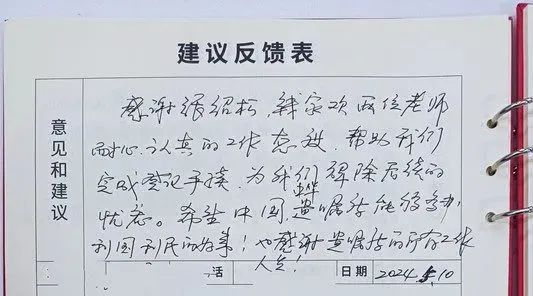 建议反馈表
意见和建议
感谢张绍松,钱家欢两位老师
耐心、认真的工作态度,帮助我们
完成登记手续,为我们解除后续的
忧虑。希望中国遗嘱库能够多办
利国利民的好事!也感谢遗嘱库的所有工作
人员!
活
日期 2024.5.10